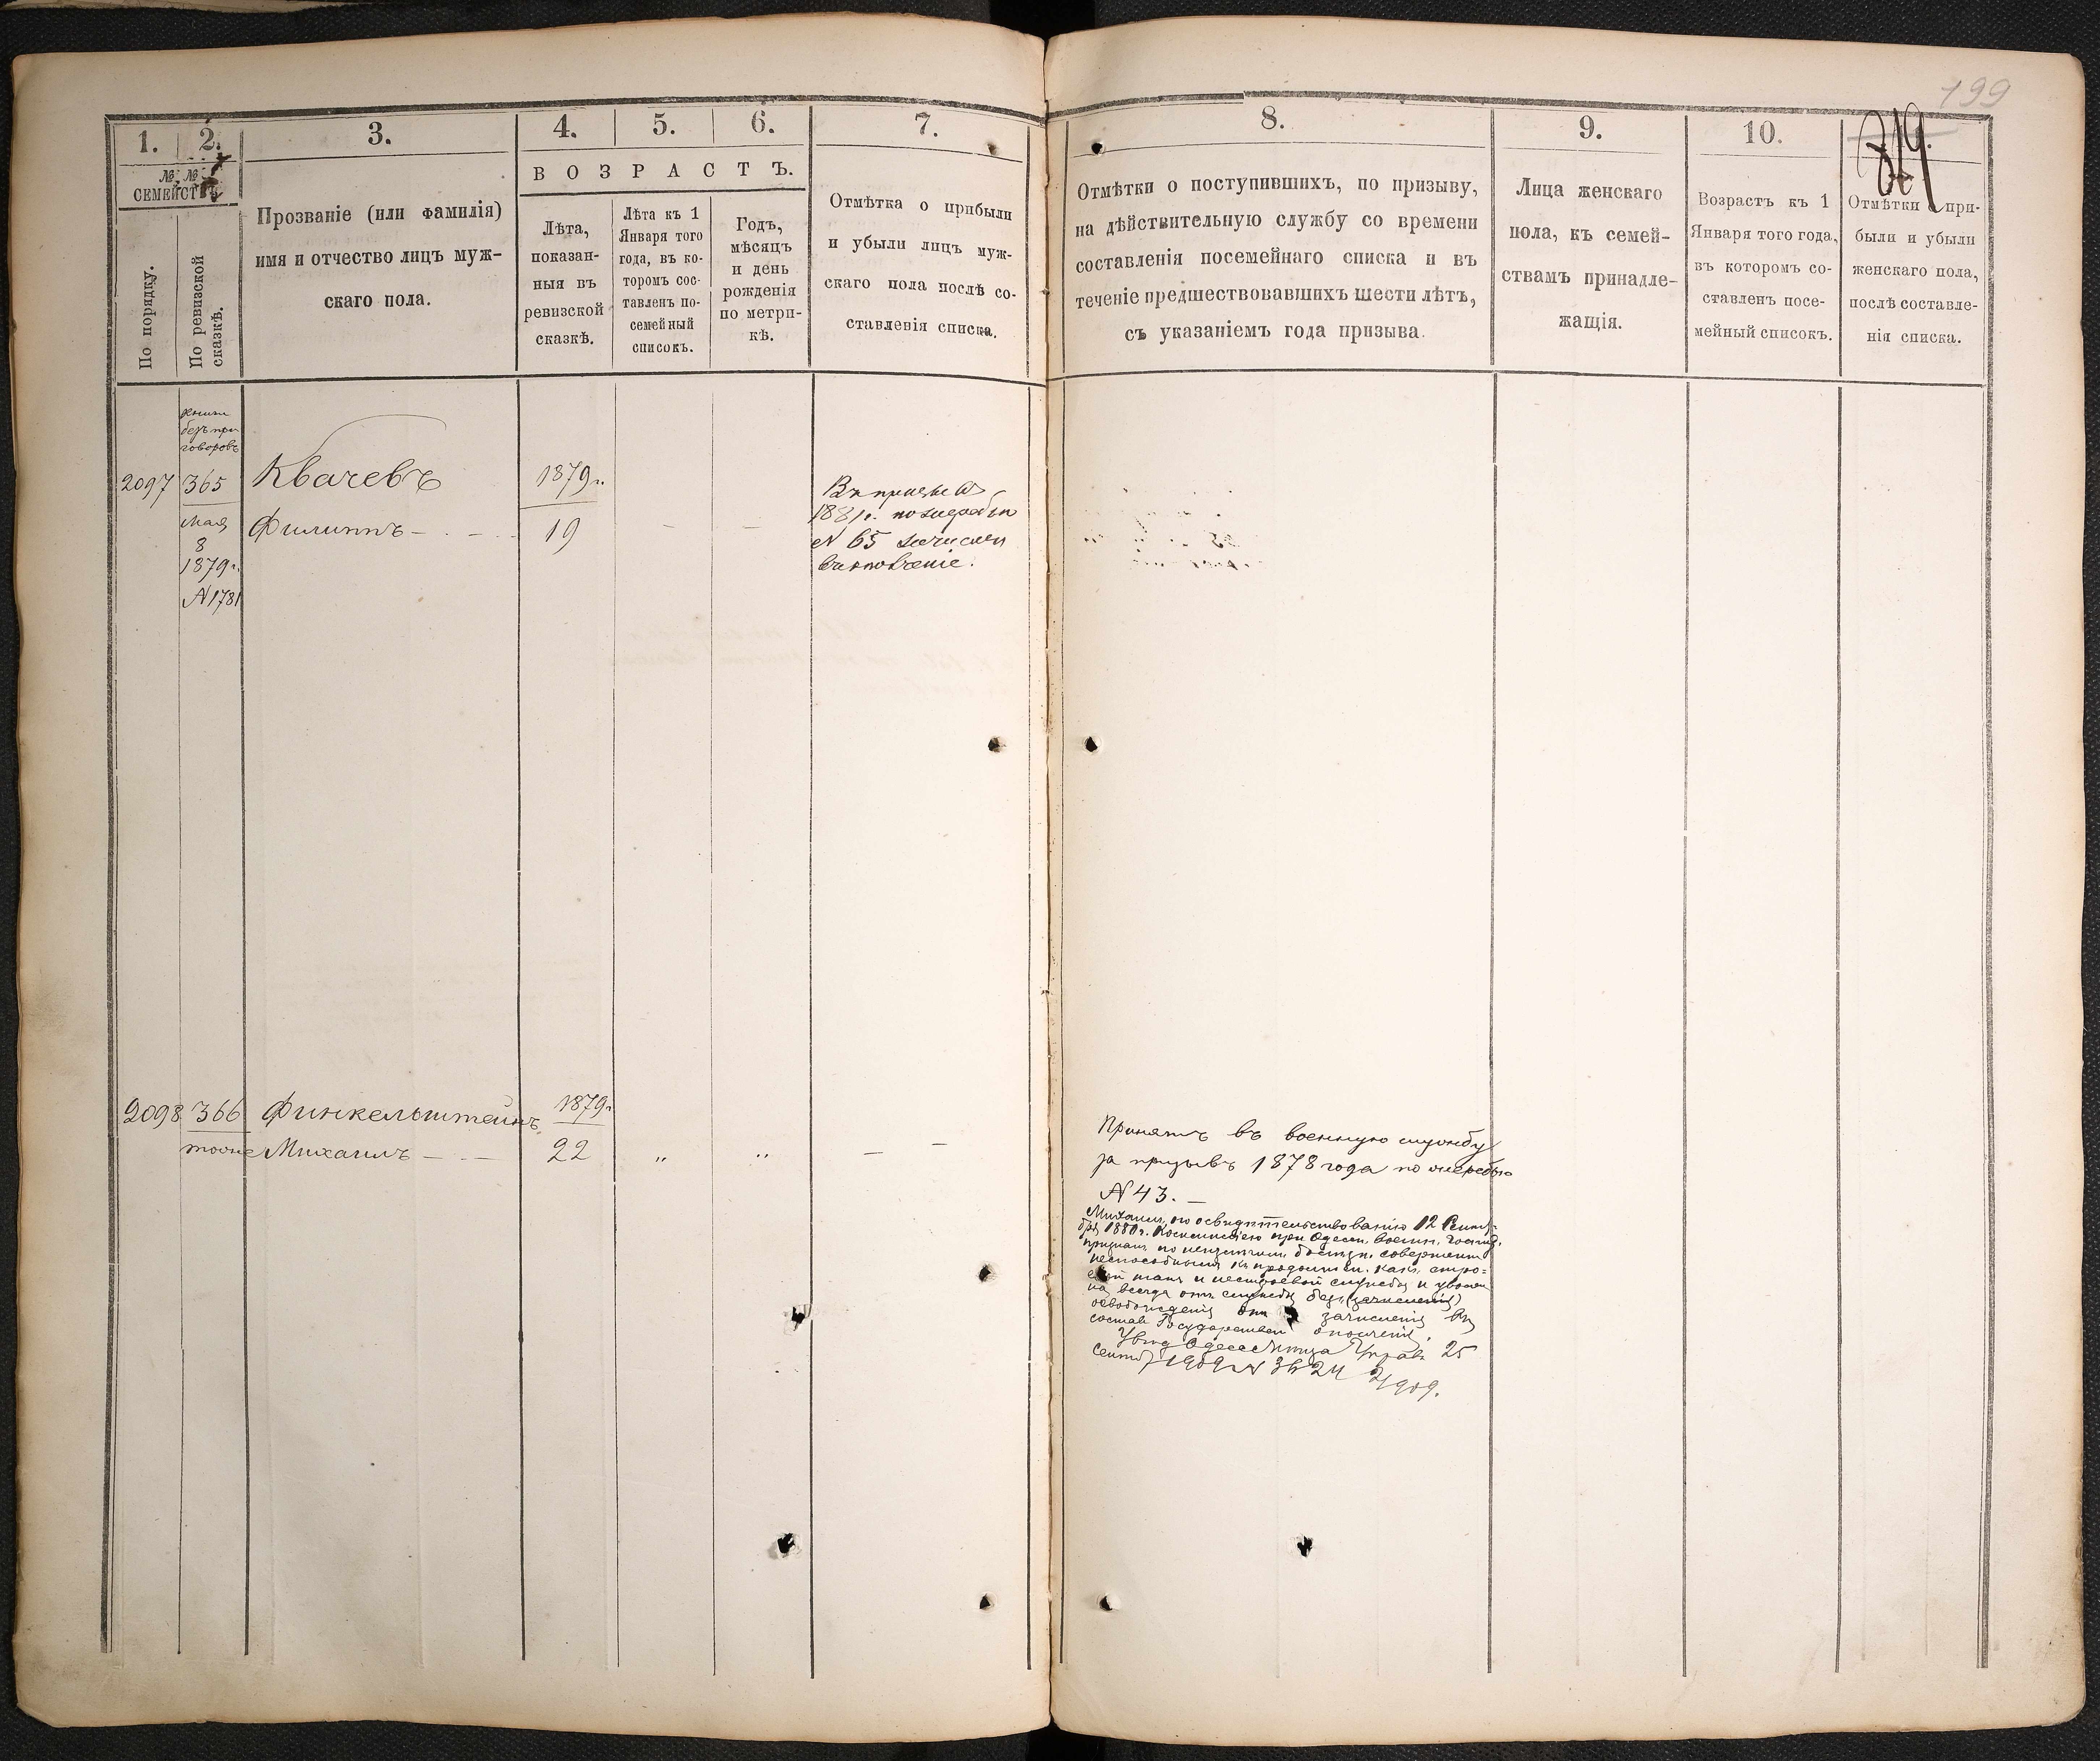 199
319
1.
2.
3.
4.
5.
6.
7.
8.
9.
10.
№ №
СЕМЕЙСТВЪ
По порядку.
По ревизской
сказкѣ.
Прозваніе (или фамилія)
имя и отчество лицъ муж-
скаго пола.
ВОЗРАСТЪ.
Лѣта,
показан-
ныя въ
ревизской
сказкѣ.
Лѣта къ 1
Января того
года, въ ко-
торомъ сос-
тавленъ по-
семейный
списокъ.
Годъ,
мѣсяцъ
и день
рожденія
по метри-
кѣ.
Отмѣтка о прибыли
и убыли лицъ муж-
скаго пола послѣ со-
ставленія списка.
Отмѣтки о поступившихъ, по призыву,
на дѣйствительную службу со времени
составленія посемейнаго списка и въ
теченіе предшествовавшихъ шести лѣтъ,
съ указаніемъ года призыва.
Лица женскаго
пола, къ семей-
ствамъ принадле-
жащія.
Возрастъ къ 1
Января того года,
въ которомъ со-
ставленъ посе-
мейный списокъ.
Отмѣтки о при-
были и убыли
женскаго пола,
послѣ составле-
нія списка.
безъ при
говоровъ
2097
365
Мая
8
1879 г.
№ 1781
Квачевъ
Филиппъ
1879 г.
19
Въ призывъ
1881 г. по жеребью
№ 65 зачислен
въ ополченіе.
2098
366
тоже
Финкельштейнъ
Михаилъ
1879 г.
22
Принятъ въ военную службу
за призывъ 1878 года по очередью
№ 43.
Михаилъ, по освидѣтельствованію 12 Сентя-
бря 1880 г. Коммиссіею при Одесс. военн. госпит.
признанъ по неизлечим. болѣзн. совершенно
неспособнымъ къ продолжен. какъ стро-
евой такъ и нестроевой службы и уволен
на всегда отъ службы безъ (зачисленія)
освобожденія отъ зачисленія въ
составъ Государствен. ополченія.
Увѣд. Одесс. Управ. 25
Сентяб. 1909 г. №
1909.